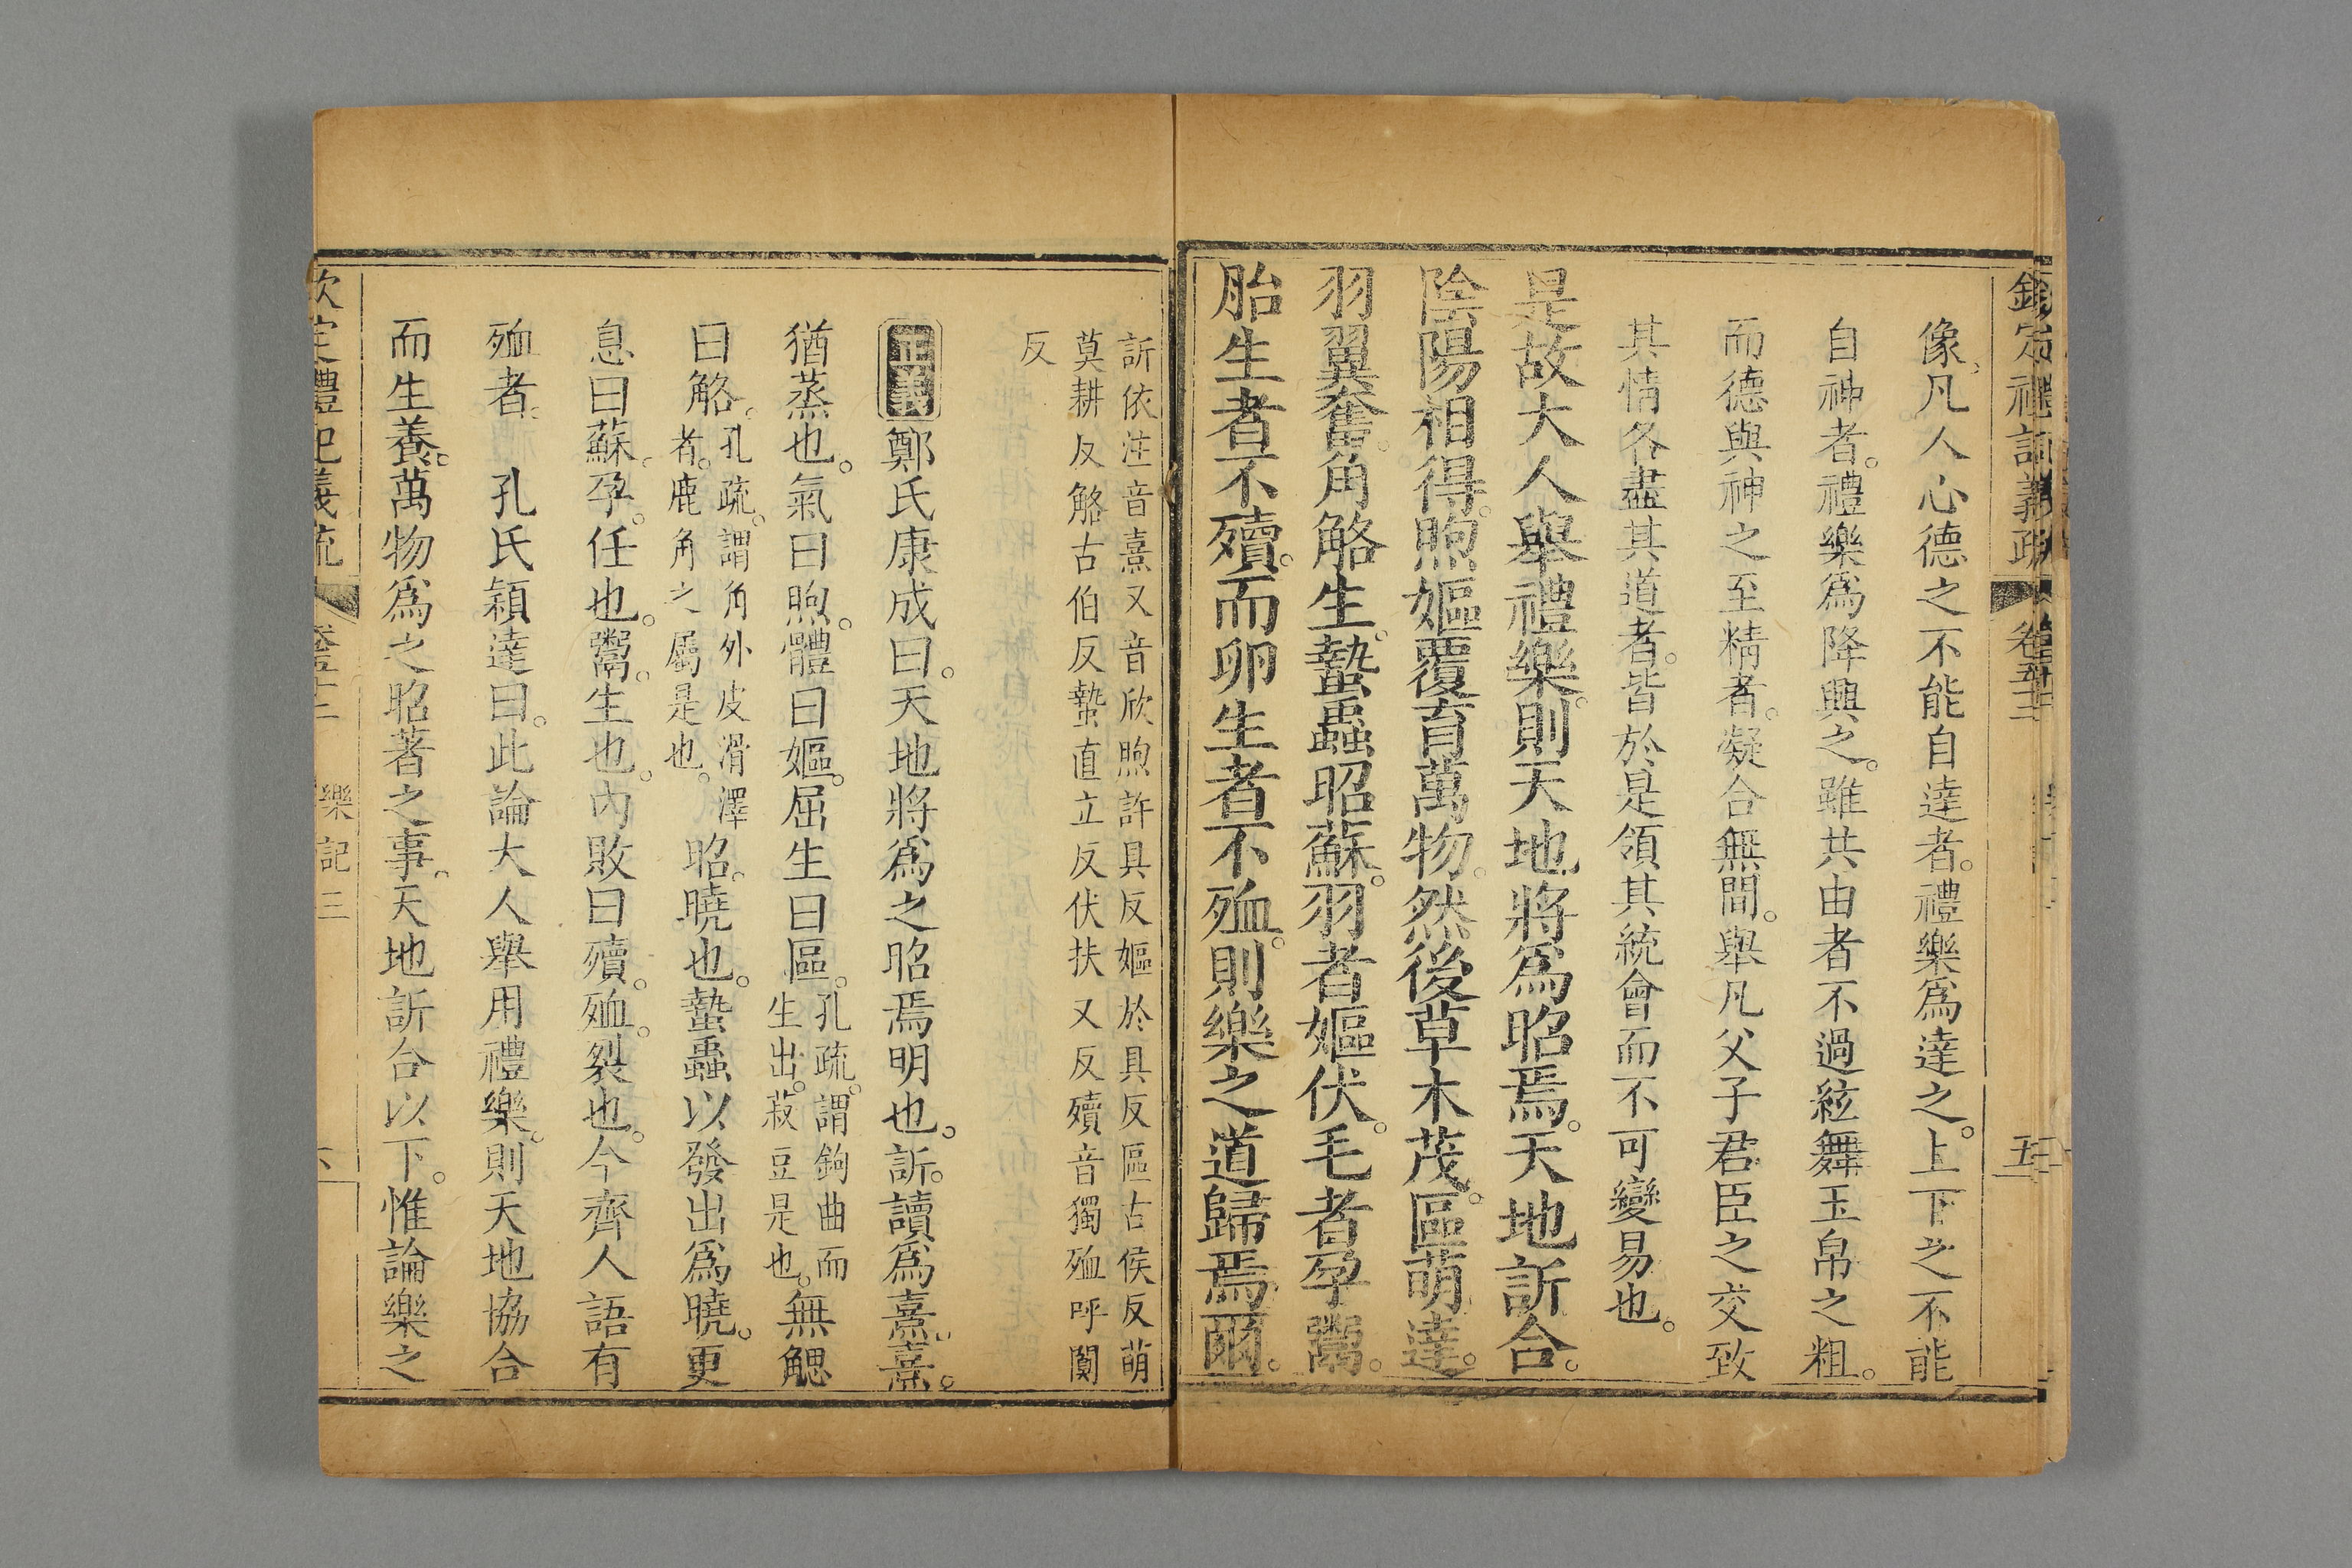 欽定禮記義疏 卷五十二 五
像、凡人心德之不能自達者。禮樂爲達之。上下之不能
自神者。禮樂爲降興之。雖共由者不過絃舞玉帛之粗。
而德與神之至精者。凝合無間。舉凡父子君臣之交致
其情各盡其道者。皆於是領其統會而不可變易也。
是故大人舉禮樂。則天地將爲昭焉。天地訢合。
陰陽相得。煦嫗覆育萬物。然後草木茂。區萌達。
羽翼奮。角觡生。蟄蟲昭蘇。羽者嫗伏。毛者孕鬻。
胎生者不殰。而卵生者不殈。則樂之道歸焉爾。
訢依注音熹又音欣煦許具反嫗於具反區古侯反萌
莫耕反觡古伯反蟄直立反伏扶又反殰音獨殈呼闃
反
正義 鄭氏康成曰。天地將爲之昭焉明也。訢。讀爲熹。熹。
猶蒸也。氣曰煦。體曰嫗。屈生曰區。孔疏。謂鉤曲而生出。菽豆是也。無䚡
曰觡。孔疏。謂角外皮滑澤者。鹿角之屬是也。昭。曉也。蟄蟲以發出爲曉。更
息曰蘇。孕。任也。鬻。生也。內敗曰殰。殈。裂也。今齊人語有
殈者。 孔氏穎達曰。此論大人舉用禮樂。則天地協合
而生養。萬物爲之昭著之事。天地訢合以下。惟論樂之
欽定禮記義疏 卷五十二 樂記三